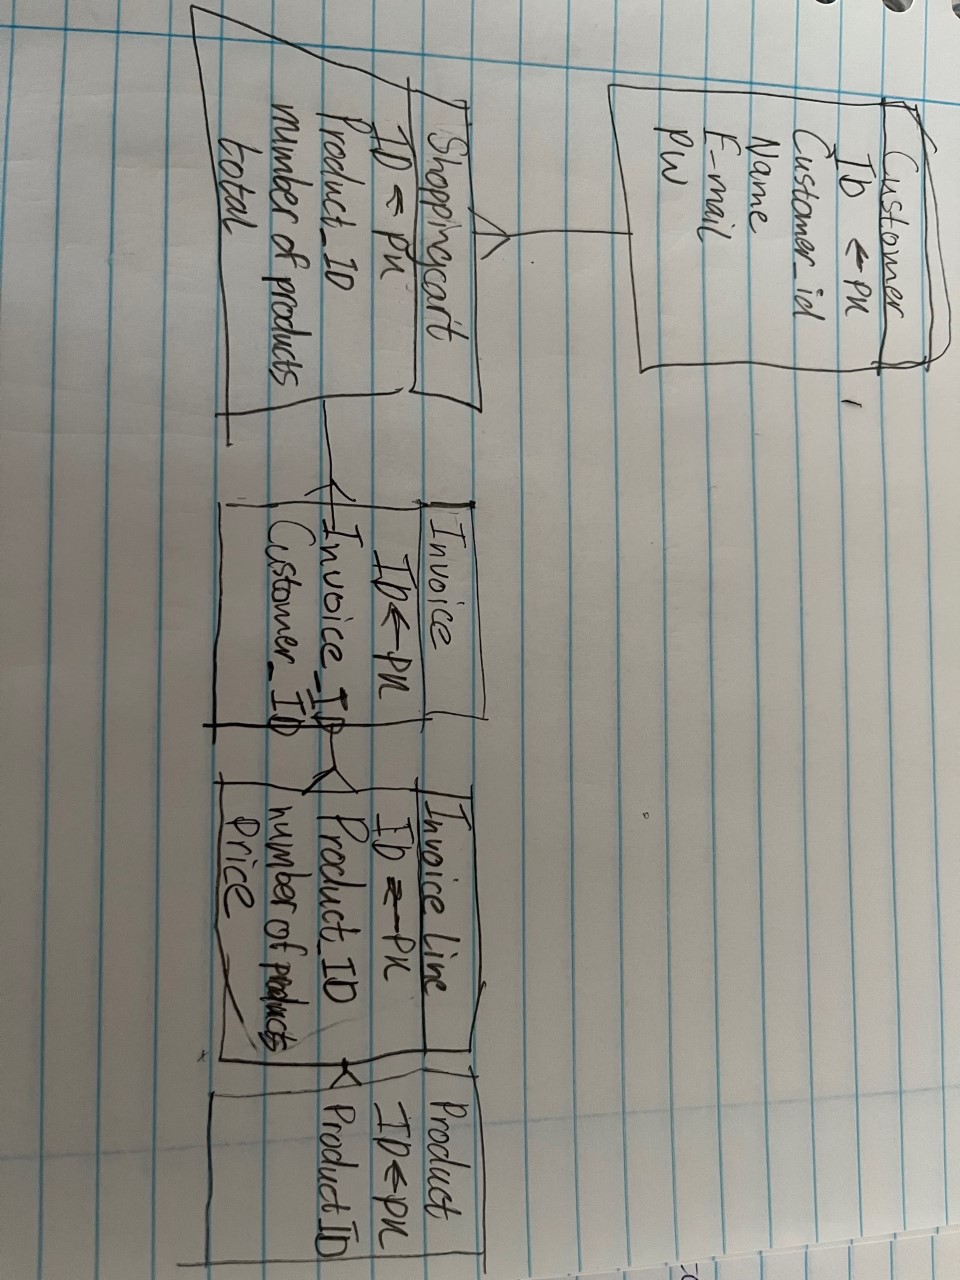 Customer
ID ← PK
Customer_id
Name
E-mail
PW
Shoppingcart
ID ← PK
Product_ID
number of products
total
Invoice
ID ← PK
Invoice_ID
Customer_ID
Invoice Line
ID ← PK
Product_ID
number of products
Price
Product
ID ← PK
Product ID